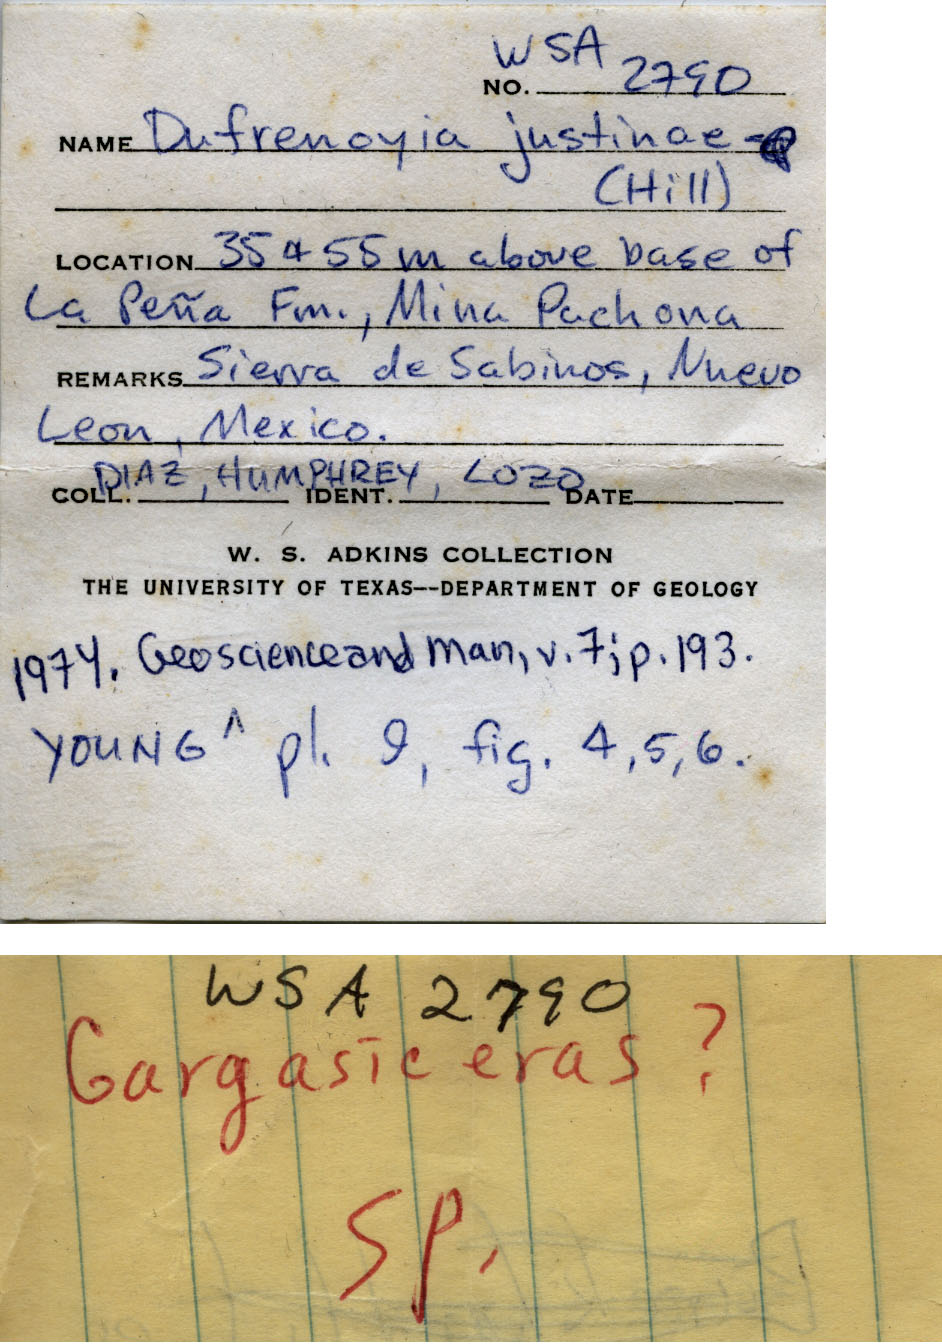 WSA
NO. 2790
NAME Dufrenoyia justinae
(Hill)
LOCATION 35 & 55 m above base of
La Peña Fm., Mina Pachona
REMARKS Sierra de Sabinos, Nuevo
Leon, Mexico.
DIAZ, HUMPHREY, LOZO
COLL. IDENT. DATE
W. S. ADKINS COLLECTION
THE UNIVERSITY OF TEXAS--DEPARTMENT OF GEOLOGY
1974. Geoscience and Man, v. 7; p. 193.
YOUNG ^ pl. 9, fig. 4, 5, 6.
WSA 2790
Gargasiceras ?
sp.